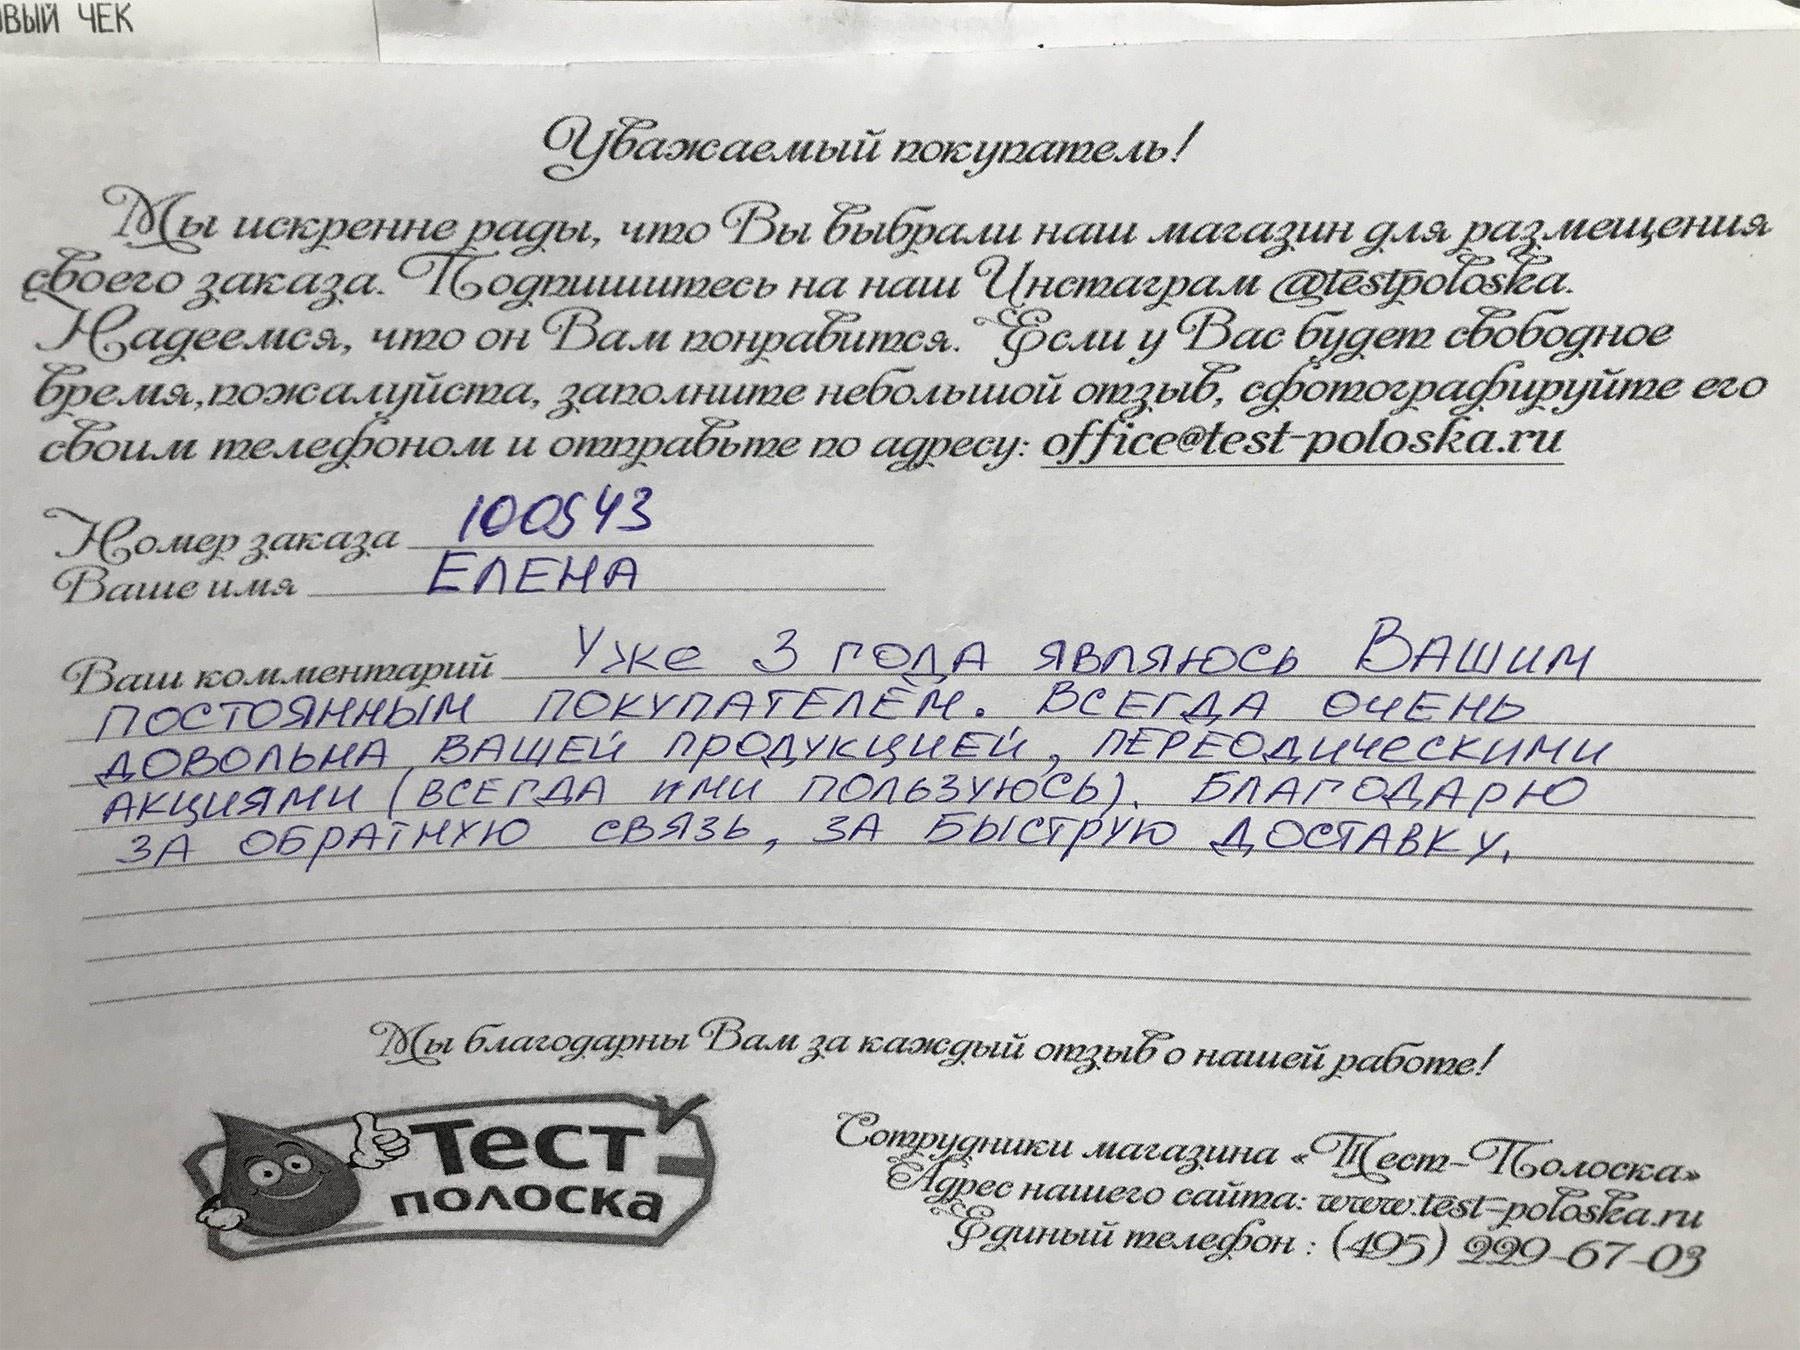 ОВЫЙ ЧЕК
Уважаемый покупатель!
Мы искренне рады, что Вы выбрали наш магазин для размещения
своего заказа. Подпишитесь на наш Инстаграм @testpoloska.
Надеемся, что он Вам понравится. Если у Вас будет свободное
время,пожалуйста, заполните небольшой отзыв, сфотографируйте его
своим телефоном и отправьте по адресу: office@test-poloska.ru
Номер заказа 100543
Ваше имя ЕЛЕНА
Ваш комментарий Уже 3 ГОДА ЯВЛЯЮСЬ ВАШИМ
ПОСТОЯННЫМ ПОКУПАТЕЛЕМ. ВСЕГДА ОЧЕНЬ
ДОВОЛЬНА ВАШЕЙ ПРОДУКЦИЕЙ, ПЕРЕОДИЧЕСКИМИ
АКЦИЯМИ (ВСЕГДА ИМИ ПОЛЬЗУЮСЬ). БЛАГОДАРЮ
ЗА ОБРАТНУЮ СВЯЗЬ, ЗА БЫСТРУЮ ДОСТАВКУ.
Мы благодарны Вам за каждый отзыв о нашей работе!
Тест
полоска
Сотрудники магазина «Тест-Полоска»
Адрес нашего сайта: www.test-poloska.ru
Единый телефон : (495) 229-67-03